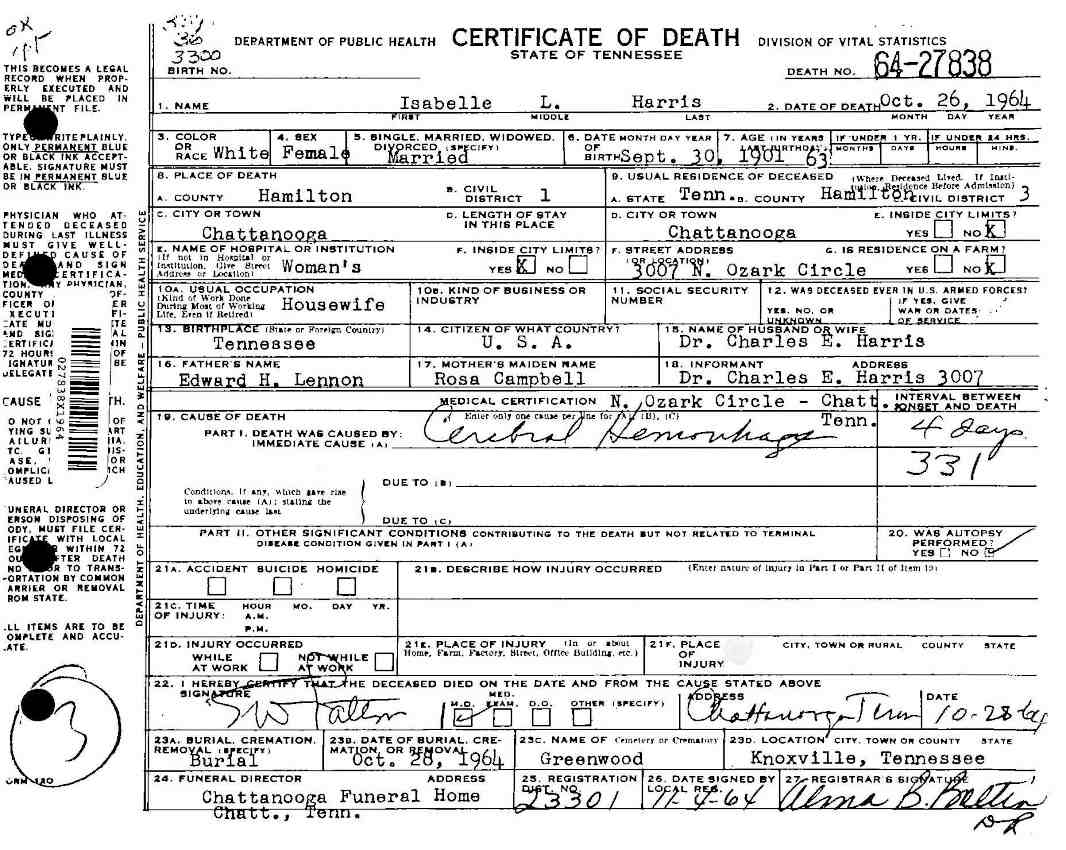 OK
36
3300
DEPARTMENT OF PUBLIC HEALTH CERTIFICATE OF DEATH DIVISION OF VITAL STATISTICS
STATE OF TENNESSEE
BIRTH NO. DEATH NO. 64-27838
THIS BECOMES A LEGAL
RECORD WHEN PROP-
ERLY EXECUTED AND
WILL BE PLACED IN
FILE.
ONLY PERMANENT BLUE
OR BLACK INK ACCEPT-
ABLE. SIGNATURE MUST
BE IN PERMANENT BLUE
OR BLACK INK.
PHYSICIAN WHO AT-
TENDED DECEASED
DURING LAST ILLNESS
MUST GIVE WELL-
CAUSE OF
AND SIGN
PHYSICIAN,
COUNTY
72 HOURS
CAUSE
WITH LOCAL
WITHIN 72
DEATH
TO TRANS-
-ORTATION BY COMMON
ARRIER OR REMOVAL
ROM STATE.
.LL ITEMS ARE TO BE
OMPLETE AND ACCU-
.ATE.
3
027838X1964
DEPARTMENT OF HEALTH, EDUCATION, AND WELFARE - PUBLIC HEALTH SERVICE
1. NAME Isabelle L. Harris 2. DATE OF DEATH Oct. 26, 1964
FIRST MIDDLE LAST MONTH DAY YEAR
3. COLOR OR RACE White 4. SEX Female 5. SINGLE, MARRIED, WIDOWED, DIVORCED, (SPECIFY) Married 6. DATE OF BIRTH MONTH DAY YEAR Sept. 30, 1901 7. AGE (IN YEARS LAST BIRTHDAY) 63 IF UNDER 1 YR. MONTHS DAYS IF UNDER 24 HRS. HOURS MINS.
8. PLACE OF DEATH 9. USUAL RESIDENCE OF DECEASED (Where Deceased Lived. If Insti-
tution, Residence Before Admission)
A. COUNTY Hamilton B. CIVIL DISTRICT 1 A. STATE Tenn. B. COUNTY Hamilton C. CIVIL DISTRICT 3
C. CITY OR TOWN D. LENGTH OF STAY IN THIS PLACE D. CITY OR TOWN E. INSIDE CITY LIMITS?
Chattanooga Chattanooga YES NO X
E. NAME OF HOSPITAL OR INSTITUTION F. INSIDE CITY LIMITS? F. STREET ADDRESS G. IS RESIDENCE ON A FARM?
(If not in Hospital or Institution, Give Street Address or Location) Woman's YES X NO (OR LOCATION) 3007 N. Ozark Circle YES NO X
10A. USUAL OCCUPATION (Kind of Work Done During Most of Working Life, Even if Retired) Housewife 10B. KIND OF BUSINESS OR INDUSTRY 11. SOCIAL SECURITY NUMBER 12. WAS DECEASED EVER IN U.S. ARMED FORCES?
YES, NO, OR UNKNOWN IF YES, GIVE WAR OR DATES OF SERVICE
13. BIRTHPLACE (State or Foreign Country) 14. CITIZEN OF WHAT COUNTRY? 15. NAME OF HUSBAND OR WIFE
Tennessee U. S. A. Dr. Charles E. Harris
16. FATHER'S NAME 17. MOTHER'S MAIDEN NAME 18. INFORMANT ADDRESS
Edward H. Lennon Rosa Campbell Dr. Charles E. Harris 3007
MEDICAL CERTIFICATION N. Ozark Circle - Chatt. INTERVAL BETWEEN ONSET AND DEATH
19. CAUSE OF DEATH Enter only one cause per line for (A), (B), (C) Tenn.
PART I. DEATH WAS CAUSED BY:
IMMEDIATE CAUSE (A) Cerebral Hemorrhage 4 days
331
DUE TO (B)
Conditions, if any, which gave rise
to above cause (A); stating the
underlying cause last
DUE TO (C)
PART II. OTHER SIGNIFICANT CONDITIONS CONTRIBUTING TO THE DEATH BUT NOT RELATED TO TERMINAL
DISEASE CONDITION GIVEN IN PART I (A)
20. WAS AUTOPSY PERFORMED?
YES NO
21A. ACCIDENT SUICIDE HOMICIDE 21B. DESCRIBE HOW INJURY OCCURRED (Enter nature of injury in Part I or Part II of Item 19)
21C. TIME OF INJURY: HOUR MO. DAY YR.
A.M.
P.M.
21D. INJURY OCCURRED 21E. PLACE OF INJURY (In or about Home, Farm, Factory, Street, Office Building, etc.) 21F. PLACE OF INJURY CITY, TOWN OR RURAL COUNTY STATE
WHILE AT WORK NOT WHILE AT WORK
22. I HEREBY CERTIFY THAT THE DECEASED DIED ON THE DATE AND FROM THE CAUSE STATED ABOVE
SIGNATURE M.D. MED. EXAM. D.O. OTHER (SPECIFY) ADDRESS Chattanooga Tenn DATE 10-28-64
23A. BURIAL, CREMATION, REMOVAL (SPECIFY) 23B. DATE OF BURIAL, CREMATION, OR REMOVAL 23C. NAME OF Cemetery or Crematory 23D. LOCATION CITY, TOWN OR COUNTY STATE
Burial Oct. 28, 1964 Greenwood Knoxville, Tennessee
24. FUNERAL DIRECTOR ADDRESS 25. REGISTRATION DIST. NO. 26. DATE SIGNED BY LOCAL REG. 27. REGISTRAR'S SIGNATURE
Chattanooga Funeral Home 23301 11-4-64 Alma B.
Chatt., Tenn.